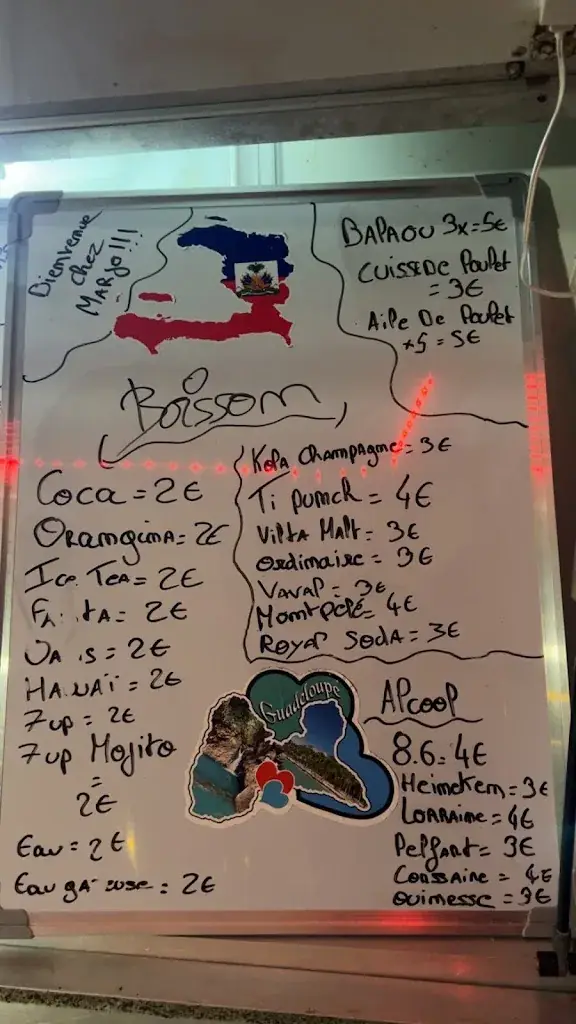 Bienvenue
chez
MARJO!!!
BALAOU 3x=5€
CUISSE DE Poulet
= 3€
Aile De Poulet
x5 = 5€
Boisson
Coca = 2€
ORangina = 2€
Ice Tea = 2€
Fanta = 2€
Oasis = 2€
HAWAÏ = 2€
7up = 2€
7up Mojito
=
2€
Eau = 2€
Eau gazeuse = 2€
Kola Champagne = 3€
Ti punch = 4€
Vilta Malt = 3€
Ordinaire = 3€
Vaval = 3€
Montpelé = 4€
Royal Soda = 3€
Guadeloupe
Alcool
8.6 = 4€
Heineken = 3€
LORRAine = 4€
Pelfort = 3€
Corsaire = 4€
Guinesse = 3€